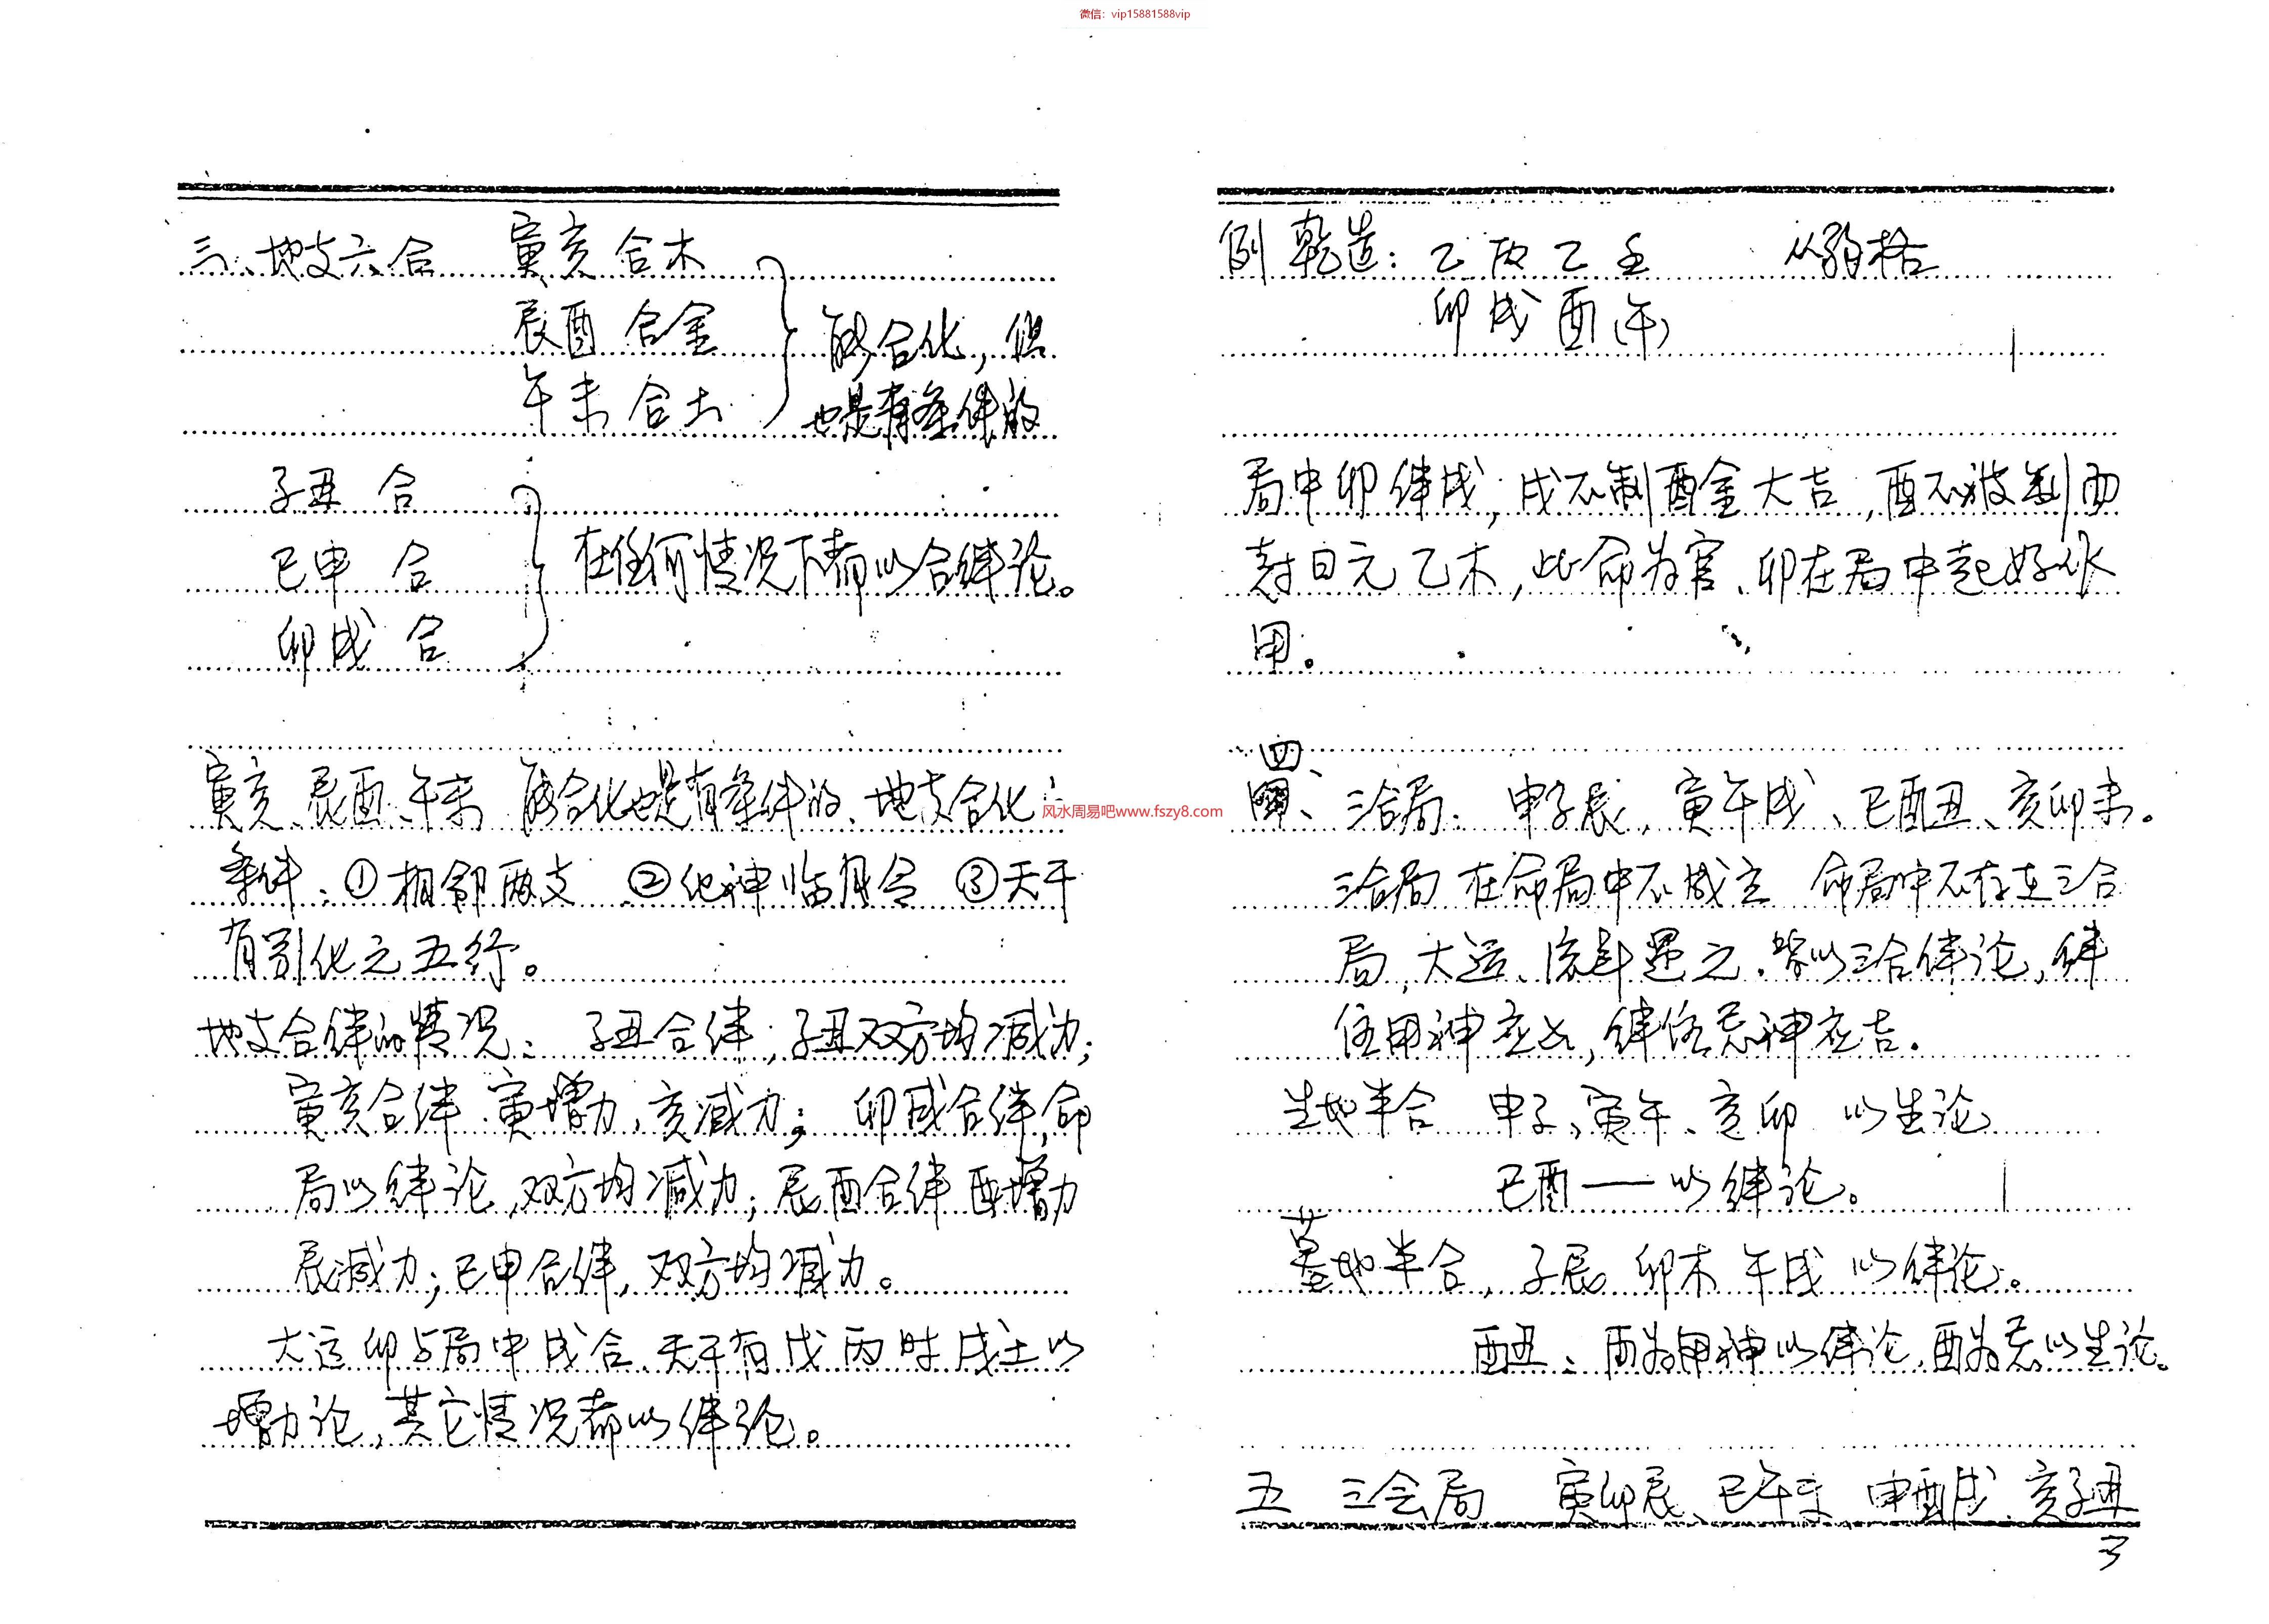 微信：vip15881588vip
三、地支六合 寅亥合木
辰酉合金
午未合土
能合化，但
也是有条件的
子丑 合
巳申 合
卯戌 合
在任何情况下都以合绊论。
寅亥、辰酉、午未 能合化也是有条件的、地支合化
条件：①相邻两支 ②化神临月令 ③天干
有引化之五行。
地支合绊的情况：子丑合绊，子丑双方均减力；
寅亥合绊、寅增力，亥减力；卯戌合绊，命
局以绊论，双方均减力；辰酉合绊酉增力
辰减力；巳申合绊，双方均减力。
大运卯与局中戌合、天干有戊丙时戌土以
增力论，其它情况都以绊论。
风水周易吧www.fszy8.com
例 乾造：乙 丙 乙 壬 从弱格
卯 戌 酉（午）
局中卯绊戌，戌不制酉金大吉，酉不被制而
克日元乙木，此命为官、卯在局中起好作
用。
四、三合局：申子辰，寅午戌、巳酉丑、亥卯未。
三合局在命局中不成立 命局中不存在三合
局，大运、流年遇之，皆以三合绊论，绊
住用神应凶，绊住忌神应吉。
生地半合 申子、寅午、亥卯 以生论
巳酉——以绊论。
墓地半合，子辰 卯未 午戌 以绊论。
酉丑、酉为用神以绊论，酉为忌以生论。
五 三会局 寅卯辰、巳午未 申酉戌、亥子丑
3